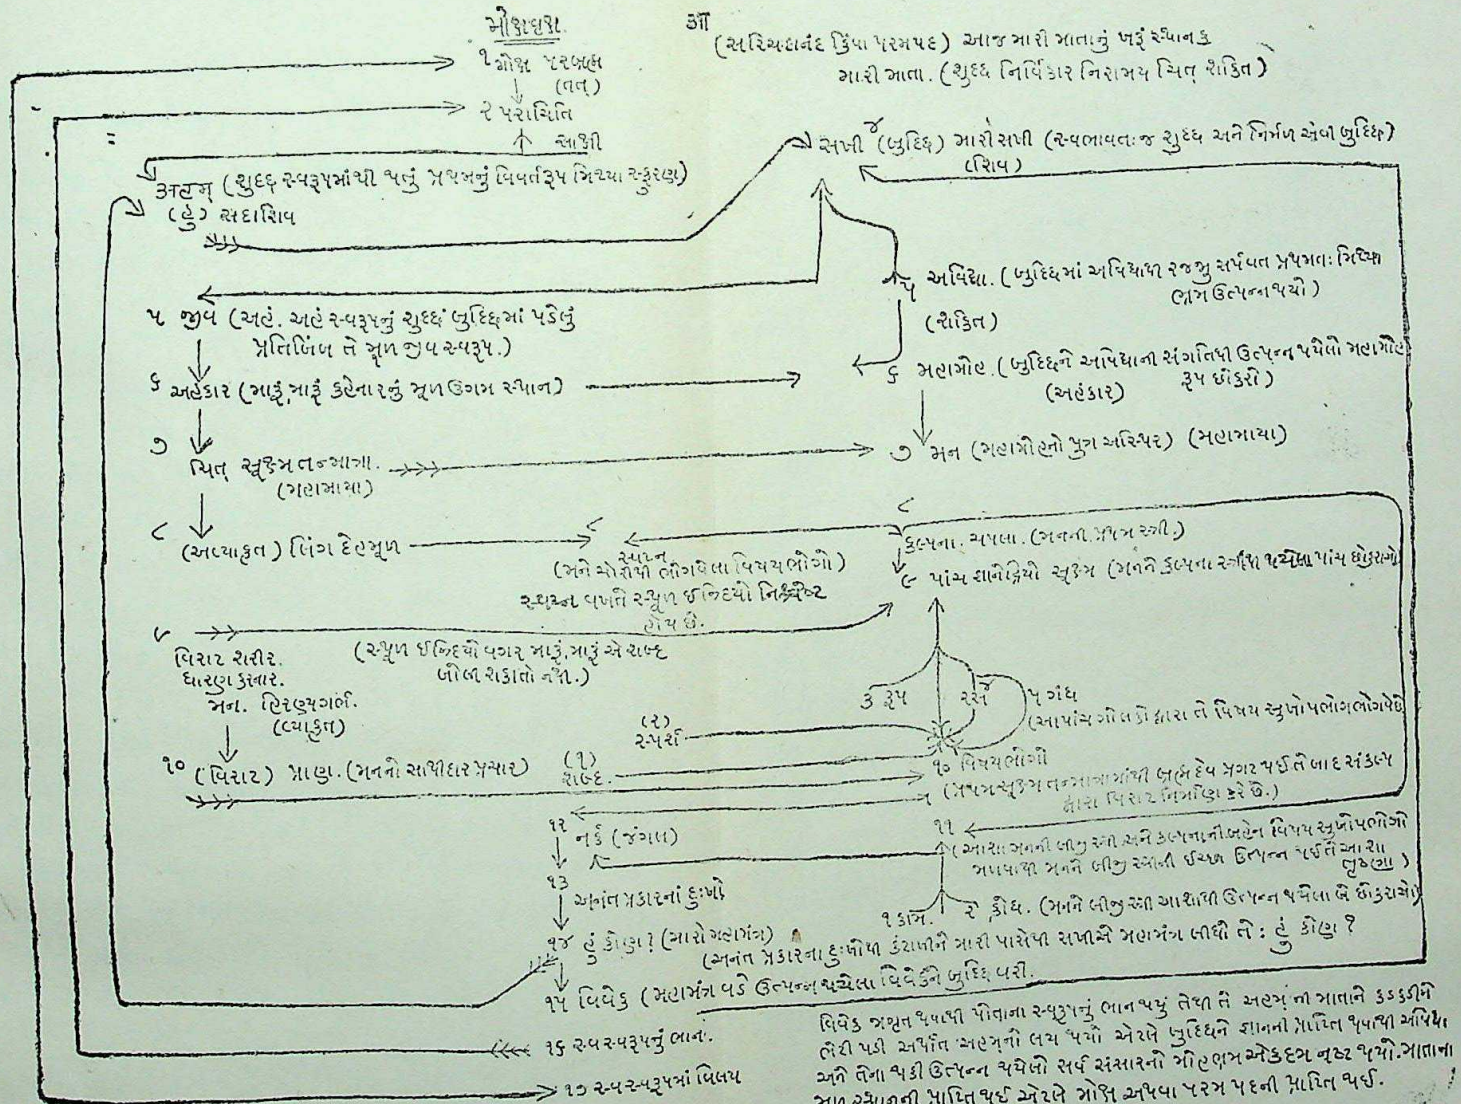 મોક્ષદશા.
ૐ
(સચ્ચિદાનંદ કિંવા પરમપદ) આજ મારી માતાનું ખરૂં સ્થાનક
મારી માતા. (શુદ્ધ નિર્વિકાર નિરામય ચિત્ શક્તિ)
૧ મોક્ષ પરબ્રહ્મ
(તત્)
૨ પરાચિતિ
સાક્ષી
૪
સખી (બુદ્ધિ) મારી સખી (સ્વભાવતઃ જ શુદ્ધ અને નિર્મળ એવી બુદ્ધિ)
(શિવ)
अहम् (શુદ્ધ સ્વરૂપમાંથી થતું પ્રથમનું વિવર્તરૂપ મિથ્યા સ્ફુરણ)
(હું) સદાશિવ
૫ અવિદ્યા. (બુદ્ધિમાં અવિદ્યાથી રજ્જુ સર્પવત પ્રથમતઃ મિથ્યા
ભ્રમ ઉત્પન્ન થયો)
(શક્તિ)
૫ જીવ (અહં. અહં સ્વરૂપનું શુદ્ધ બુદ્ધિમાં પડેલું
પ્રતિબિંબ તે મૂળ જીવ સ્વરૂપ.)
૬ અહંકાર (મારૂં, મારૂં કહેનારનું મૂળ ઉગમ સ્થાન)
૬ મહામોહ. (બુદ્ધિને અવિદ્યાની સંગતિથી ઉત્પન્ન થયેલો મહામોહ
રૂપ છોકરો)
(અહંકાર)
૭
ચિત્ સૂક્ષ્મ તન્માત્રા.
(મહામાયા)
૭ મન (મહામોહનો પુત્ર અસ્થિર) (મહામાયા)
૮
(અવ્યાકૃત) લિંગ દેહમૂળ
૮
સ્વપ્ન
(મને ચોરીથી ભોગવેલા વિષયભોગો)
સ્વપ્ન વખતે સ્થૂળ ઈન્દ્રિયો નિશ્ચેષ્ટ
હોય છે.
૮
કલ્પના. ચપલા. (મનની પ્રથમ સ્ત્રી.)
૯ પાંચ જ્ઞાનેન્દ્રિયો સૂક્ષ્મ (મનને કલ્પના સ્ત્રીથી થયેલા પાંચ છોકરાઓ)
૯
વિરાટ શરીર.
ધારણ કરનાર.
મન. હિરણ્યગર્ભ.
(વ્યાકૃત)
(સ્થૂળ ઈન્દ્રિયો વગર મારૂં, મારૂં એ શબ્દ
બોલી શકાતો નથી.)
૩ રૂપ
૪ રસ
૫ ગંધ
(આ પાંચ ગોલકો દ્વારા તે વિષય સુખોપભોગ ભોગવે છે)
(૨)
સ્પર્શ
(૧)
શબ્દ.
૧૦ (વિરાટ) પ્રાણ. (મનનો સાથીદાર પ્રચાર)
૧૦ વિષયભોગો
(પ્રથમ સૂક્ષ્મ તન્માત્રામાંથી બ્રહ્મદેવ પ્રગટ થઈ તે બાદ સંકલ્પ
દ્વારા વિરાટ નિર્માણ કરે છે.)
૧૧
(આશા મનની બીજી સ્ત્રી અને કલ્પનાની બહેન વિષય સુખોપભોગો
મળવાથી મનને બીજી સ્ત્રીની ઈચ્છા ઉત્પન્ન થઈ તે આશા
તૃષ્ણા)
૧૨
નર્ક (જંગલ)
૧૩
અનંત પ્રકારનાં દુઃખો
૧ કામ. ૨ ક્રોધ. (મનને બીજી સ્ત્રી આશાથી ઉત્પન્ન થયેલા બે છોકરાઓ)
૧૪ હું કોણ? (મારો મહામંત્ર)
(અનંત પ્રકારના દુઃખોથી કંટાળીને મારી પાસેથી સખીએ મહામંત્ર લીધો તે: હું કોણ?
૧૫ વિવેક (મહામંત્ર વડે ઉત્પન્ન થયેલા વિવેકને બુદ્ધિ વરી.
૧૬ સ્વ સ્વરૂપનું ભાન.
૧૭ સ્વ સ્વરૂપમાં વિલય
વિવેક જાગૃત થવાથી પોતાના સ્વરૂપનું ભાન થયું તેથી તે અહમ્ ની માતાને કડકડીને
ભેટી પડી અર્થાત અહમ્‌નો લય થયો એટલે બુદ્ધિને જ્ઞાનની પ્રાપ્તિ થવાથી અવિદ્યા
અને તેના થકી ઉત્પન્ન થયેલો સર્વ સંસારનો મોહભ્રમ એકદમ નષ્ટ થયો. માતાના
મૂળ સ્થાનની પ્રાપ્તિ થઈ એટલે મોક્ષ અથવા પરમ પદની પ્રાપ્તિ થઈ.